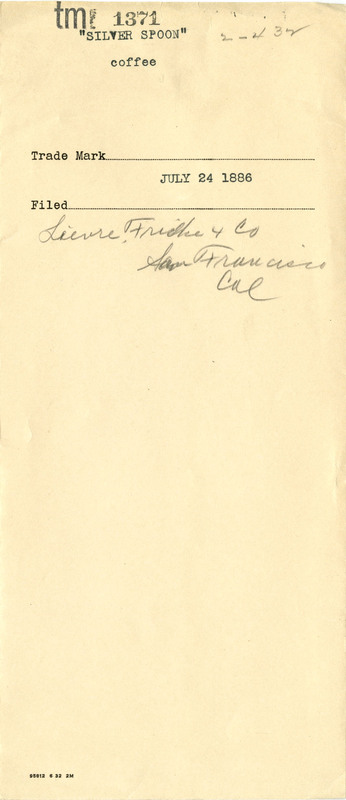 tmr 1371
"SILVER SPOON" 2-432
coffee
Trade Mark
JULY 24 1886
Filed
Lievre, Fricke & Co
San Francisco
Cal
95612 6 32 2M